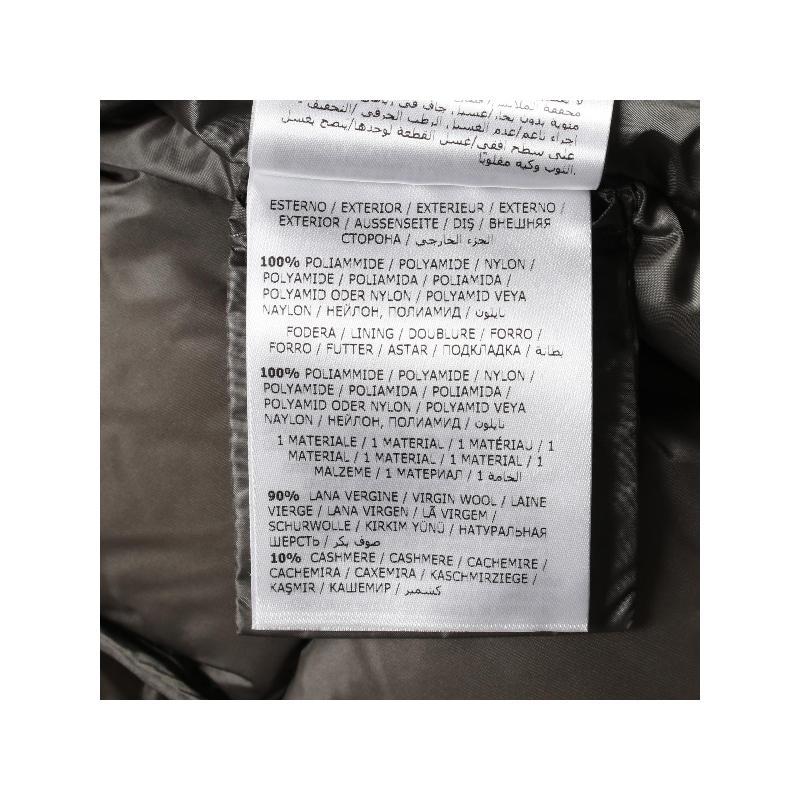 منوية بدون بخار/عسيل جاف في
اجراء ناعم/عدم الغسيل الرطب الحرفي /التجفيف
على سطح افقي/غسل القطعة لوحدها/ينصح بغسل
الثوب وكيه مقلوبًا.
ESTERNO / EXTERIOR / EXTERIEUR / EXTERNO /
EXTERIOR / AUSSENSEITE / DIŞ / ВНЕШНЯЯ
СТОРОНА / الجزء الخارجي
100% POLIAMMIDE / POLYAMIDE / NYLON /
POLYAMIDE / POLIAMIDA / POLIAMIDA /
POLYAMID ODER NYLON / POLYAMID VEYA
NAYLON / НЕЙЛОН, ПОЛИАМИД / نايلون
FODERA / LINING / DOUBLURE / FORRO /
FORRO / FUTTER / ASTAR / ПОДКЛАДКА / بطانة
100% POLIAMMIDE / POLYAMIDE / NYLON /
POLYAMIDE / POLIAMIDA / POLIAMIDA /
POLYAMID ODER NYLON / POLYAMID VEYA
NAYLON / НЕЙЛОН, ПОЛИАМИД / نايلون
1 MATERIALE / 1 MATERIAL / 1 MATÉRIAU / 1
MATERIAL / 1 MATERIAL / 1 MATERIAL / 1
MALZEME / 1 МАТЕРИАЛ / 1 الخامة
90% LANA VERGINE / VIRGIN WOOL / LAINE
VIERGE / LANA VIRGEN / LÃ VIRGEM /
SCHURWOLLE / KIRKIM YÜNÜ / НАТУРАЛЬНАЯ
ШЕРСТЬ / صوف بكر
10% CASHMERE / CASHMERE / CACHEMIRE /
CACHEMIRA / CAXEMIRA / KASCHMIRZIEGE /
KAŞMIR / КАШЕМИР / كشمير